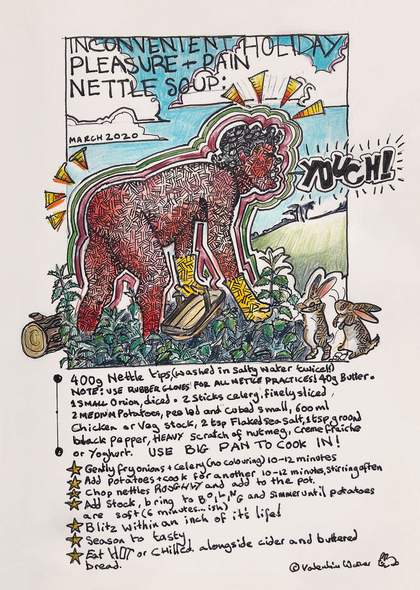 INCONVENIENT HOLIDAY
PLEASURE + PAIN
NETTLE SOUP:
MARCH 2020
YOUCH!
400g Nettle tips, (washed in salty water twice!!)
NOTE: USE RUBBER GLOVES FOR ALL NETTLE PRACTICES! 40g Butter.
1 SMALL Onion, diced. 2 Sticks celery, finely sliced,
2 MEDIUM Potatoes, peeled and cubed small, 600ml
Chicken or Veg stock, 2 tsp Flaked sea salt, 1 tsp ground
black pepper, HEAVY scratch of nutmeg, Creme fraiche
or Yoghurt. USE BIG PAN TO COOK IN!
Gently fry onions + Celery (no colouring) 10-12 minutes
Add potatoes + cook for another 10-12 minutes, stirring often
Chop nettles ROUGHLY and add to the pot.
Add stock, bring to BOILING and simmer until potatoes
are soft (6 minutes...ish)
Blitz within an inch of it's life!
Season to tasty
Eat HOT or CHILLED alongside cider and buttered
bread.
© Valentine Warner